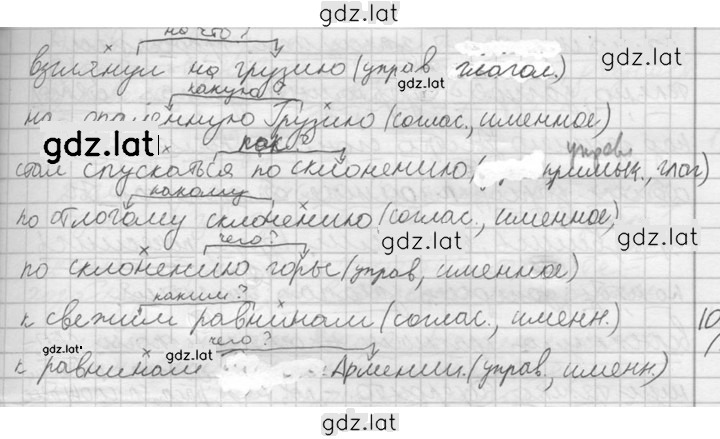 gdz.lat
на что?
gdz.lat
взглянул на грузию (управ глагол.)
gdz.lat
какую?
на Грузию (соглас., именное)
gdz.lat
как?
управ.
стал спускаться по склонению, ( примык., глаг)
какому
по отлогому склонению (соглас., именное)
gdz.lat
gdz.lat
чего?
по склонению горы (управ, именное)
каким?
к свежим равнинам (соглас., именн.) 10
gdz.lat
gdz.lat
чего?
к равнинам Армении. (управ, именн.)
gdz.lat